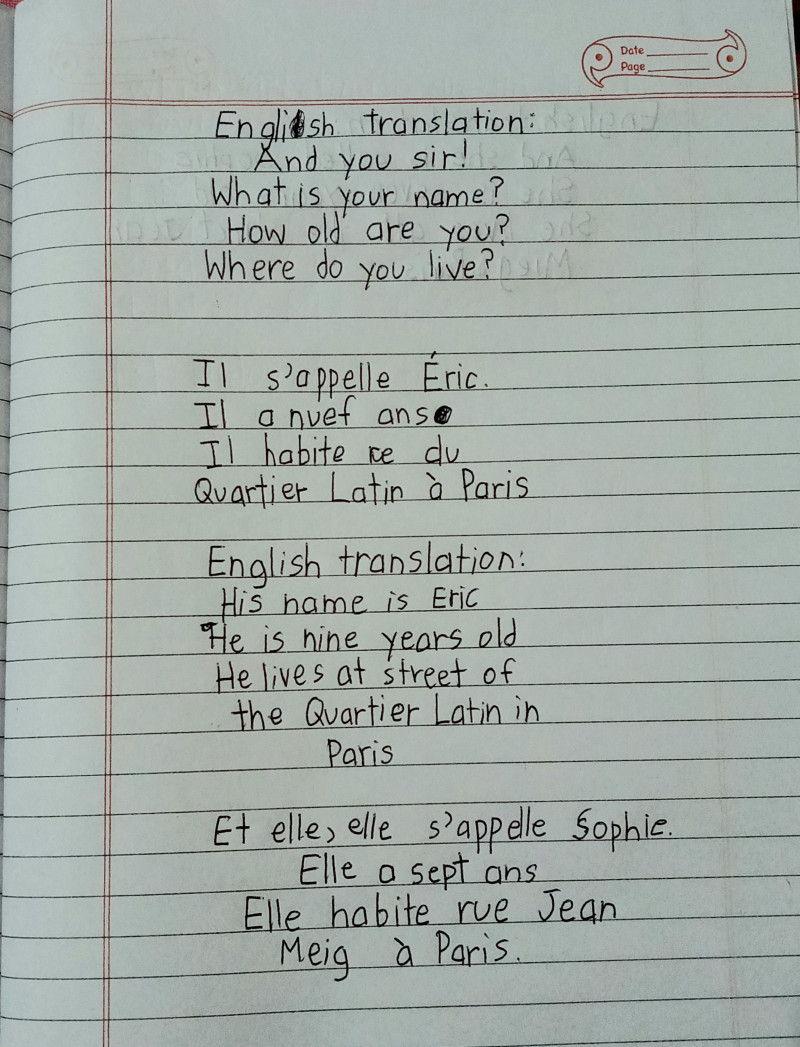 Date
Page
English translation:
And you sir!
What is your name?
How old are you?
Where do you live?
Il s'appelle Éric.
Il a nuef ans
Il habite re du
Quartier Latin à Paris
English translation:
His name is Eric
He is nine years old
He lives at street of
the Quartier Latin in
Paris
Et elle, elle s'appelle Sophie.
Elle a sept ans
Elle habite rue Jean
Meig à Paris.